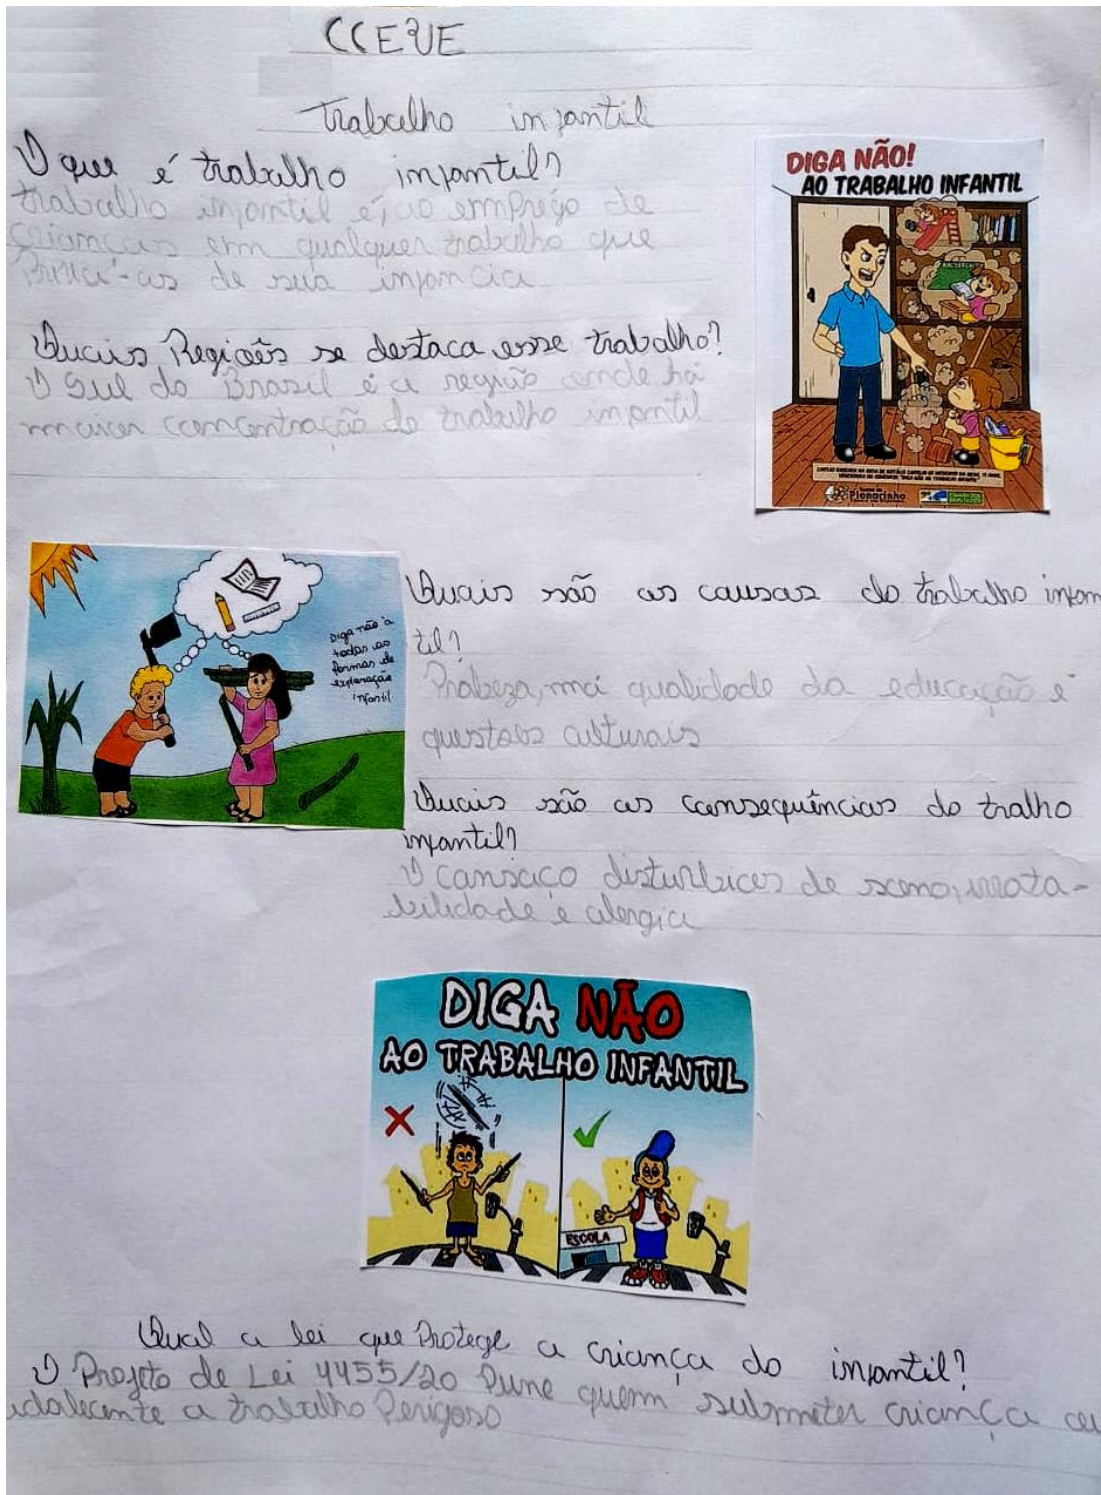 CCEVE
Trabalho infantil
O que é trabalho infantil?
trabalho infantil é, o emprego de
crianças em qualquer trabalho que
Priva-as de sua infancia
Quais Regiões se destaca esse trabalho?
O Sul do Brasil é a região onde há
maior concentração do trabalho infantil
DIGA NÃO!
AO TRABALHO INFANTIL
Plenarinho
Diga não à
todas as
formas de
exploração
infantil
Quais são as causas do trabalho infan
til?
Probeza, má qualidade da educação e
questões culturais
Quais são as consequências do tralho
infantil?
O cansaço disturbios de sono, irrata-
bilidade e alergia
DIGA NÃO
AO TRABALHO INFANTIL
ESCOLA
Qual a lei que Protege a criança do infantil?
O Projeto de Lei 4455/20 Pune quem submeter criança ou
adolecente a trabalho Perigoso